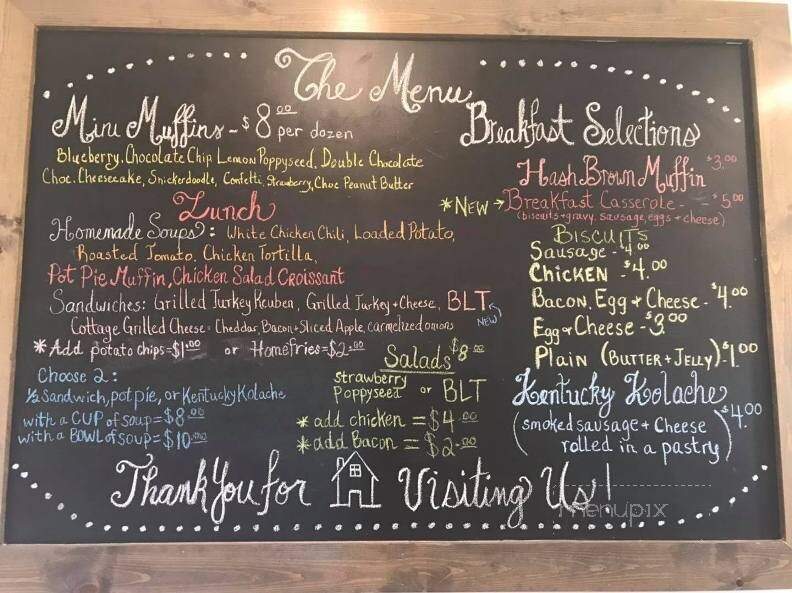 The Menu
Mini Muffins - $8.00 per dozen
Blueberry, Chocolate Chip, Lemon Poppyseed, Double Chocolate
Choc. Cheesecake, Snickerdoodle, Confetti, Strawberry, Choc Peanut Butter
Lunch
Homemade Soups: White Chicken Chili, Loaded Potato,
Roasted Tomato, Chicken Tortilla,
Pot Pie Muffin, Chicken Salad Croissant
Sandwiches: Grilled Turkey Reuben, Grilled Turkey + Cheese, BLT
NEW
Cottage Grilled Cheese - Cheddar, Bacon + Sliced Apple, carmelized onions
* Add potato chips = $1.00 or Homefries = $2.00
Choose 2:
1/2 Sandwich, pot pie, or Kentucky Kolache
with a CUP of soup = $8.00
with a BOWL of soup = $10.00
Salads $8.00
Strawberry Poppyseed or BLT
* add chicken = $4.00
* add Bacon = $2.00
Breakfast Selections
Hash Brown Muffin $3.00
* NEW → Breakfast Casserole - $5.00
(biscuits + gravy, sausage, eggs + cheese)
BISCUITS
Sausage - $4.00
CHICKEN - $4.00
Bacon, Egg + Cheese - $4.00
Egg + Cheese - $3.00
Plain (Butter + Jelly) - $1.00
Kentucky Kolache $4.00
(smoked sausage + Cheese
rolled in a pastry)
Thank You for Visiting Us!
menupix